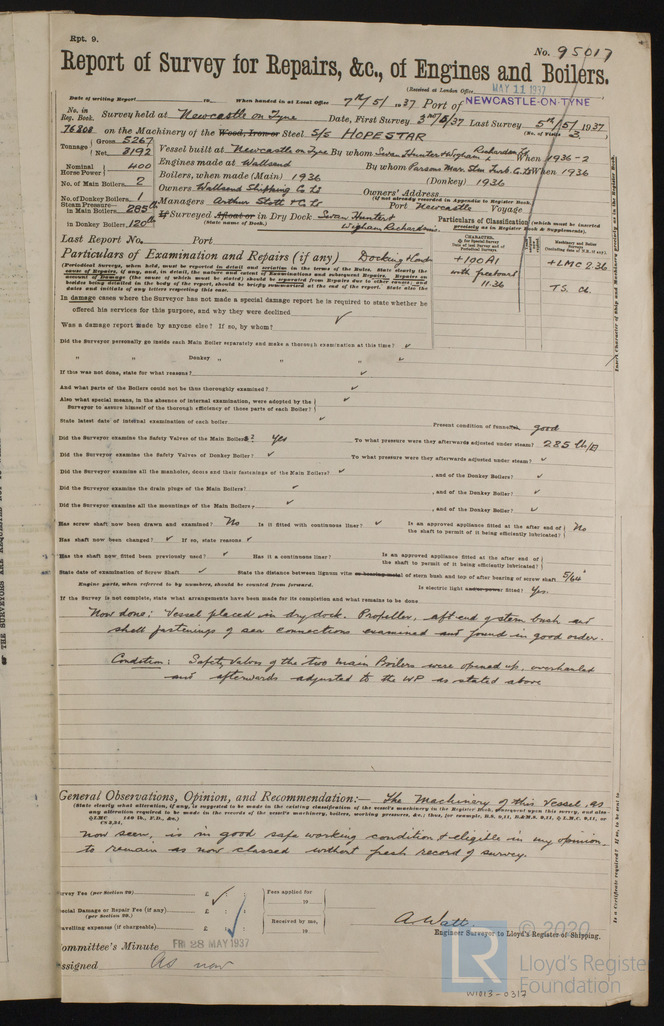 Rpt. 9.
No. 95017
Report of Survey for Repairs, &c., of Engines and Boilers.
(Received at London Office MAY 11 1937
Date of writing Report 19 When handed in at Local Office 7th/5/1937 Port of NEWCASTLE-ON-TYNE
No. in Reg. Book. Survey held at Newcastle on Tyne Date, First Survey 3rd/5/37 Last Survey 5th/5/1937
76808 on the Machinery of the Wood, Iron or Steel S/S HOPESTAR (No. of Visits 3)
Tonnage Gross 5267 Net 3192
Vessel built at Newcastle on Tyne By whom Swan Hunter & Wigham Richardson Ld When 1936-2
Nominal Horse Power 400
Engines made at Wallsend By whom Parsons Mar. Stm Turb. Co Ld When 1936
No. of Main Boilers 2
Boilers, when made (Main) 1936 (Donkey) 1936
No. of Donkey Boilers 1
Owners Wallsend Shipping Co Ld Owners' Address
(if not already recorded in Appendix to Register Book.)
Steam Pressure in Main Boilers 285 lb
Managers Arthur Stott & Co Ld Port Newcastle Voyage
in Donkey Boiler 120 lb
If Surveyed Afloat or in Dry Dock Swan Hunter & Wigham Richardsons.
(State name of Dock.)
Particulars of Classification (which must be inserted precisely as in Register Book & Supplements).
Last Report No. Port
Particulars of Examination and Repairs (if any) Docking &
CHARACTER.
+100A1
with freeboard
11.36
+LMC 2.36
T.S. CL.
In damage cases where the Surveyor has not made a special damage report he is required to state whether he
offered his services for this purpose, and why they were declined ✓
Was a damage report made by anyone else? If so, by whom?
Did the Surveyor personally go inside each Main Boiler separately and make a thorough examination at this time? ✓
" " Donkey " " " ✓ "
If this was not done, state for what reasons? ✓
And what parts of the Boilers could not be thoroughly examined? ✓
Also what special means, in the absence of internal examination, were adopted by the
Surveyor to assure himself of the thorough efficiency of those parts of each Boiler? ✓
State latest date of internal examination of each boiler Present condition of funnel good
Did the Surveyor examine the Safety Valves of the Main Boilers? Yes To what pressure were they afterwards adjusted under steam? 285 lb/□
Did the Surveyor examine the Safety Valves of Donkey Boiler? ✓ To what pressure were they afterwards adjusted under steam? ✓
Did the Surveyor examine all the manholes, doors and their fastenings of the Main Boilers? ✓ , and of the Donkey Boiler? ✓
Did the Surveyor examine the drain plugs of the Main Boilers? ✓ , and of the Donkey Boiler? ✓
Did the Surveyor examine all the mountings of the Main Boilers? ✓ , and of the Donkey Boiler? ✓
Has screw shaft now been drawn and examined? No Is it fitted with continuous liner? ✓ Is an approved appliance fitted at the after end of
the shaft to permit of it being efficiently lubricated? No
Has shaft now been changed? ✓ If so, state reasons ✓
Has the shaft now fitted been previously used? ✓ Has it a continuous liner? Is an approved appliance fitted at the after end of
the shaft to permit of it being efficiently lubricated?
State date of examination of Screw Shaft ✓ State the distance between lignum vitæ or bearing metal of stern bush and top of after bearing of screw shaft 5/64"
Engine parts, when referred to by numbers, should be counted from forward. Is electric light and/or power fitted? Yes.
If the Survey is not complete, state what arrangements have been made for its completion and what remains to be done
Now done: Vessel placed in dry dock. Propeller, aft end of stern bush and
shell fastenings of sea connections examined and found in good order.
Condition: Safety Valves of the two main Boilers were opened up, overhauled
and afterwards adjusted to the WP as stated above
General Observations, Opinion, and Recommendation:— The Machinery of this Vessel, as
now seen, is in good safe working condition & eligible in my opinion
to remain as now classed without fresh record of survey.
Survey Fee (per Section 29) £ : : Fees applied for
19
Special Damage or Repair Fee (if any) £ : :
(per Section 29.)
Received by me,
19
Travelling expenses (if chargeable) £ : :
A. Watt
Engineer Surveyor to Lloyd's Register of Shipping.
Committee's Minute FRI 28 MAY 1937
Assigned As now
© 2020
LR
Lloyd's Register
Foundation
W1013-0317